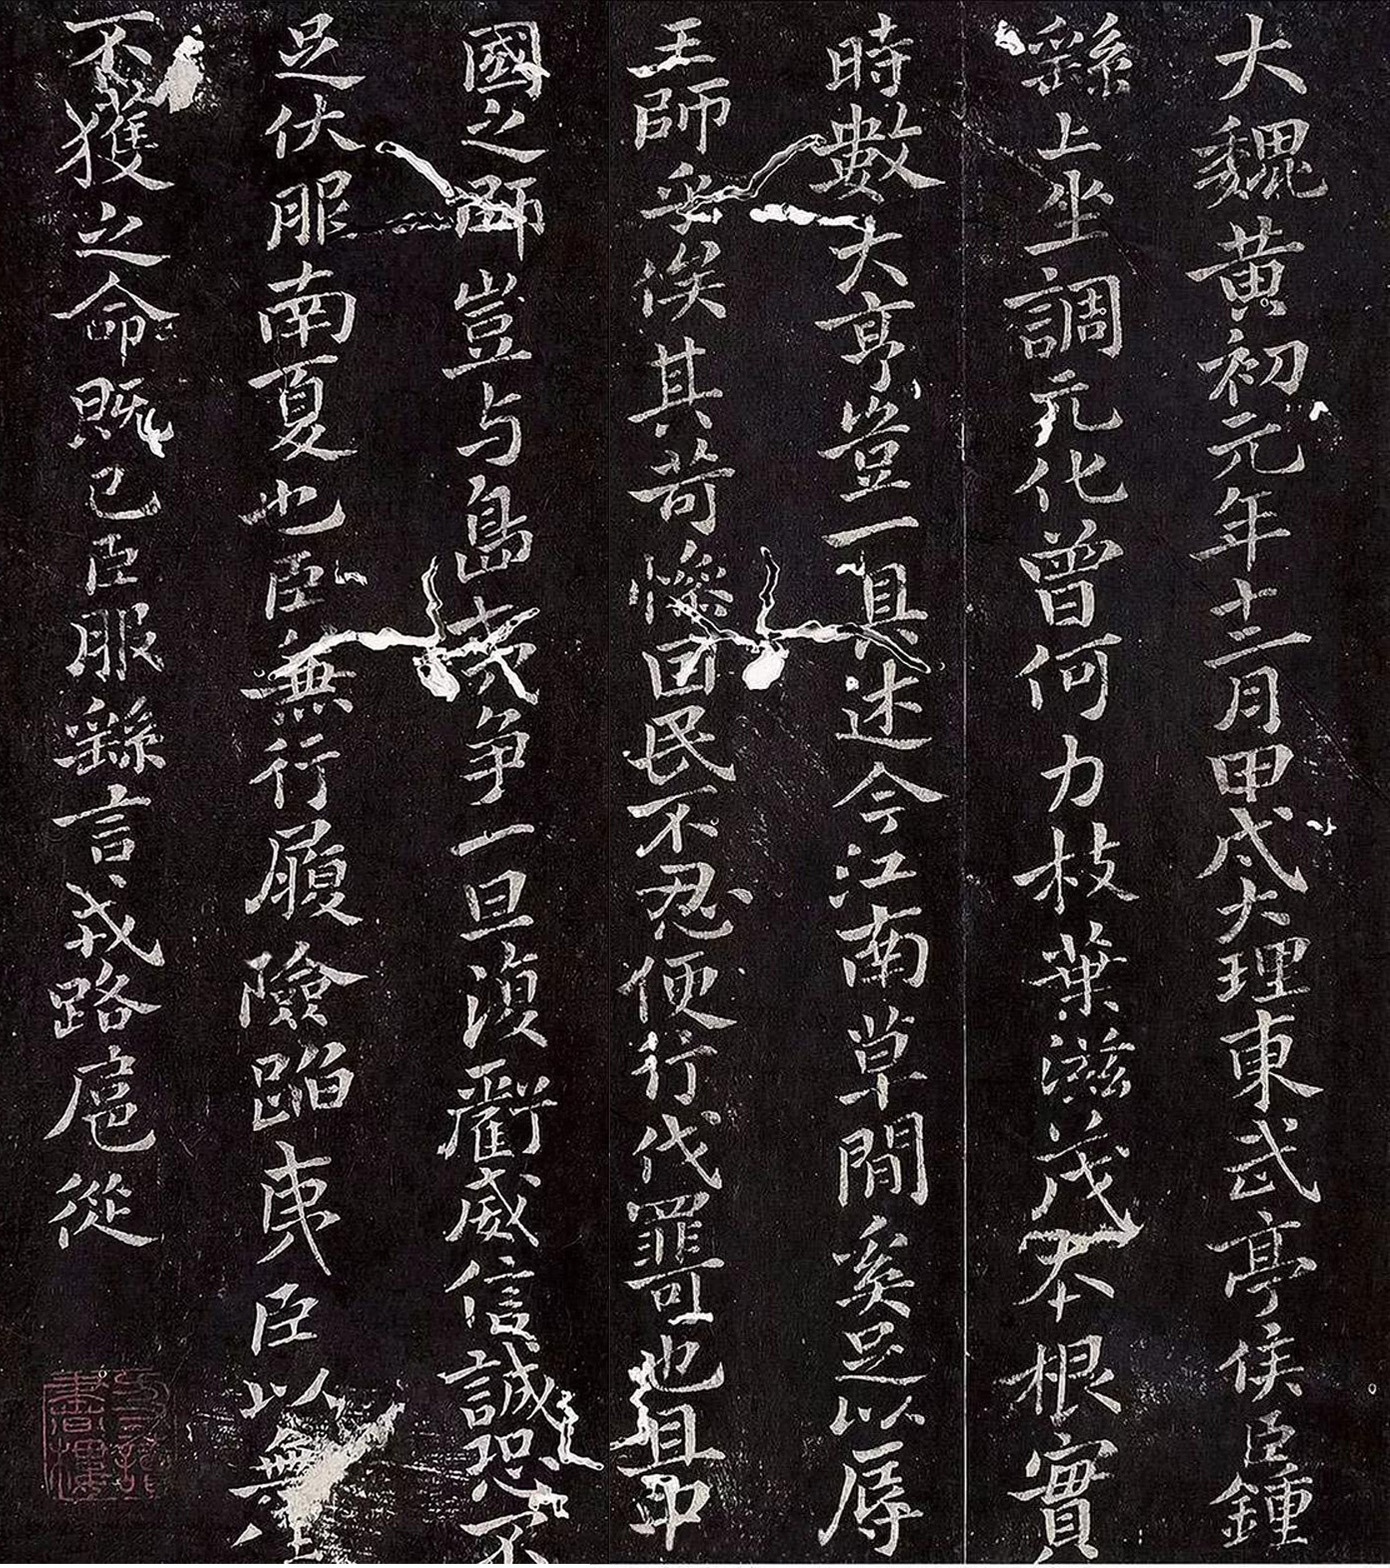 大魏黄初元年十二月甲戌大理東武亭侯臣鍾
繇上坐調元化曾何力枝葉滋茂本根實
時數大亨豈一具述今江南草間奚足以辱
王師乎俟其苛慘困民不忍便行伐罪可也且中
國之師豈与島夷争一旦復虧威信誠恐不
足伏服南夏也臣無行履險蹈夷臣以無
不獲之命既已臣服繇言戎路扈從